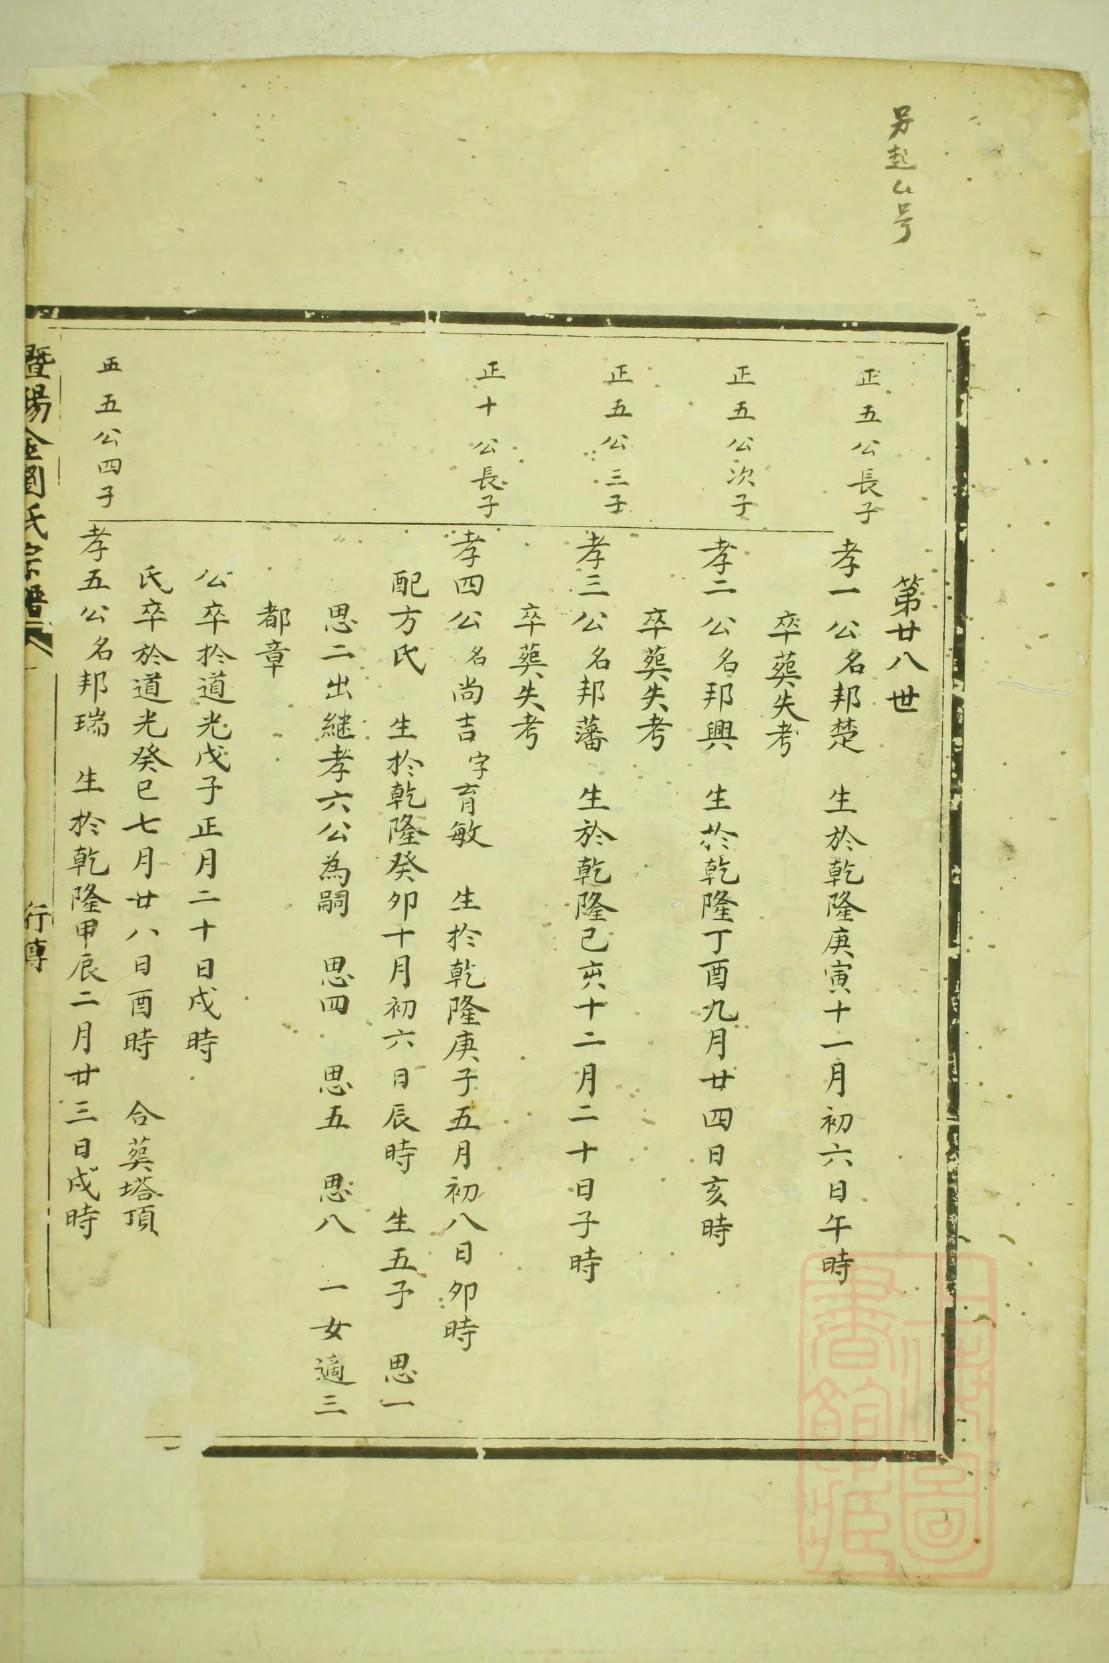 另起
号
第廿八世
正五公長子
孝一公名邦楚 生於乾隆庚寅十一月初六日午時
卒葬失考
正五公次子
孝二公名邦興 生於乾隆丁酉九月廿四日亥時
卒葬失考
正五公三子
孝三公名邦藩 生於乾隆己亥十二月二十日子時
卒葬失考
正十公長子
孝四公名尚吉字育敏 生於乾隆庚子五月初八日卯時
配方氏 生於乾隆癸卯十月初六日辰時 生五子 思一
思二出継孝六公為嗣 思四 思五 思八 一女適三
都章
公卒於道光戊子正月二十日戌時
氏卒於道光癸巳七月廿八日酉時 合葬塔頂
五公四子
孝五公名邦瑞 生於乾隆甲辰二月廿三日戌時
暨陽金閣氏宗譜
行傳
上海圖書館藏